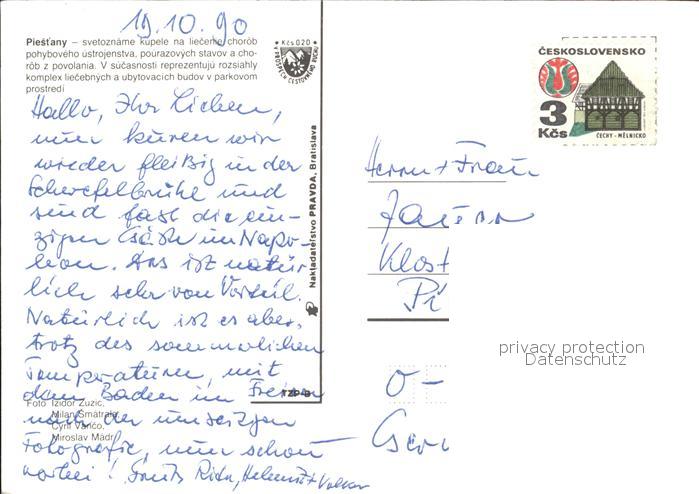 19.10.90
Piešťany – svetoznáme kúpele na liečenie chorôb
pohybového ústrojenstva, poúrazových stavov a cho-
rôb z povolania. V súčasnosti reprezentujú rozsiahly
komplex liečebných a ubytovacích budov v parkovom
prostredí
Hallo, Ihr Lieben,
nun kuren wir
wieder fleißig in der
Schwefelbrühe und
sind fast die ein-
zigen Gäste im Napo-
leon. Das ist natür-
lich sehr von Vorteil.
Natürlich ist es aber,
trotz des sommerlichen
Temperaturen, mit
dem Baden im Freien
nach der umseitigen
Fotografie, nun schon
vorbei! Gruß Rita, Helmut + Volker
Foto Izidor Zuzic,
Milan Šmatrala,
Cyril Vančo,
Miroslav Mádr
Kčs 0,20
V PROSPECH CESTOVNÉHO RUCHU
Nakladateľstvo PRAVDA, Bratislava
TZP-B
ČESKOSLOVENSKO
3
Kčs
ČECHY - MĚLNICKO
Herrn + Frau
Klost
O-
privacy protection
Datenschutz